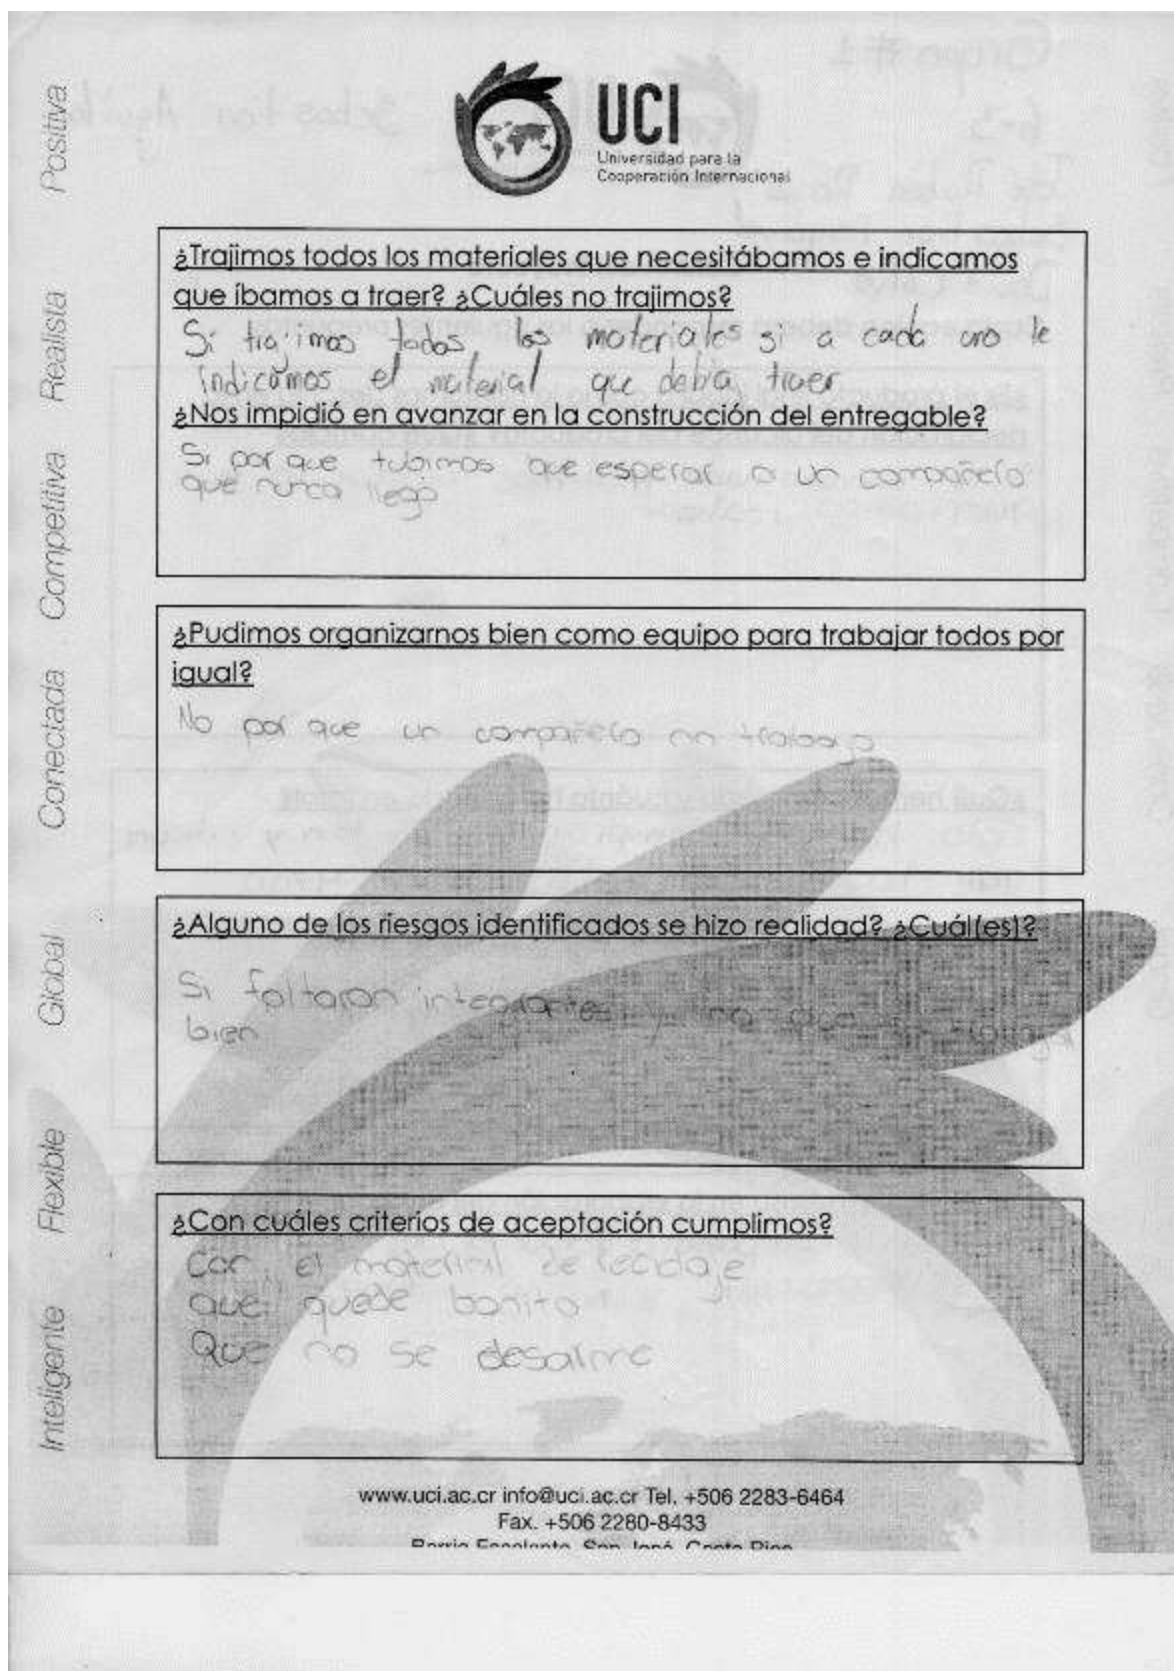 Positiva
Realista
Competitiva
Conectada
Global
Flexible
Inteligente
UCI
Universidad para la
Cooperación Internacional
¿Trajimos todos los materiales que necesitábamos e indicamos
que íbamos a traer? ¿Cuáles no trajimos?
Si trajimos todos los materiales si a cada uno le
indicamos el material que debia traer
¿Nos impidió en avanzar en la construcción del entregable?
Si por que tubimos que esperar a un compañero
que nunca llego
¿Pudimos organizarnos bien como equipo para trabajar todos por
igual?
No por que un compañero no trabajo
¿Alguno de los riesgos identificados se hizo realidad? ¿Cuál(es)?
Si faltaron integrantes y
bien
¿Con cuáles criterios de aceptación cumplimos?
Con el material de reciclaje
que quede bonito
Que no se desarme
www.uci.ac.cr info@uci.ac.cr Tel. +506 2283-6464
Fax. +506 2280-8433
Barrio Escalante, San José, Costa Rica